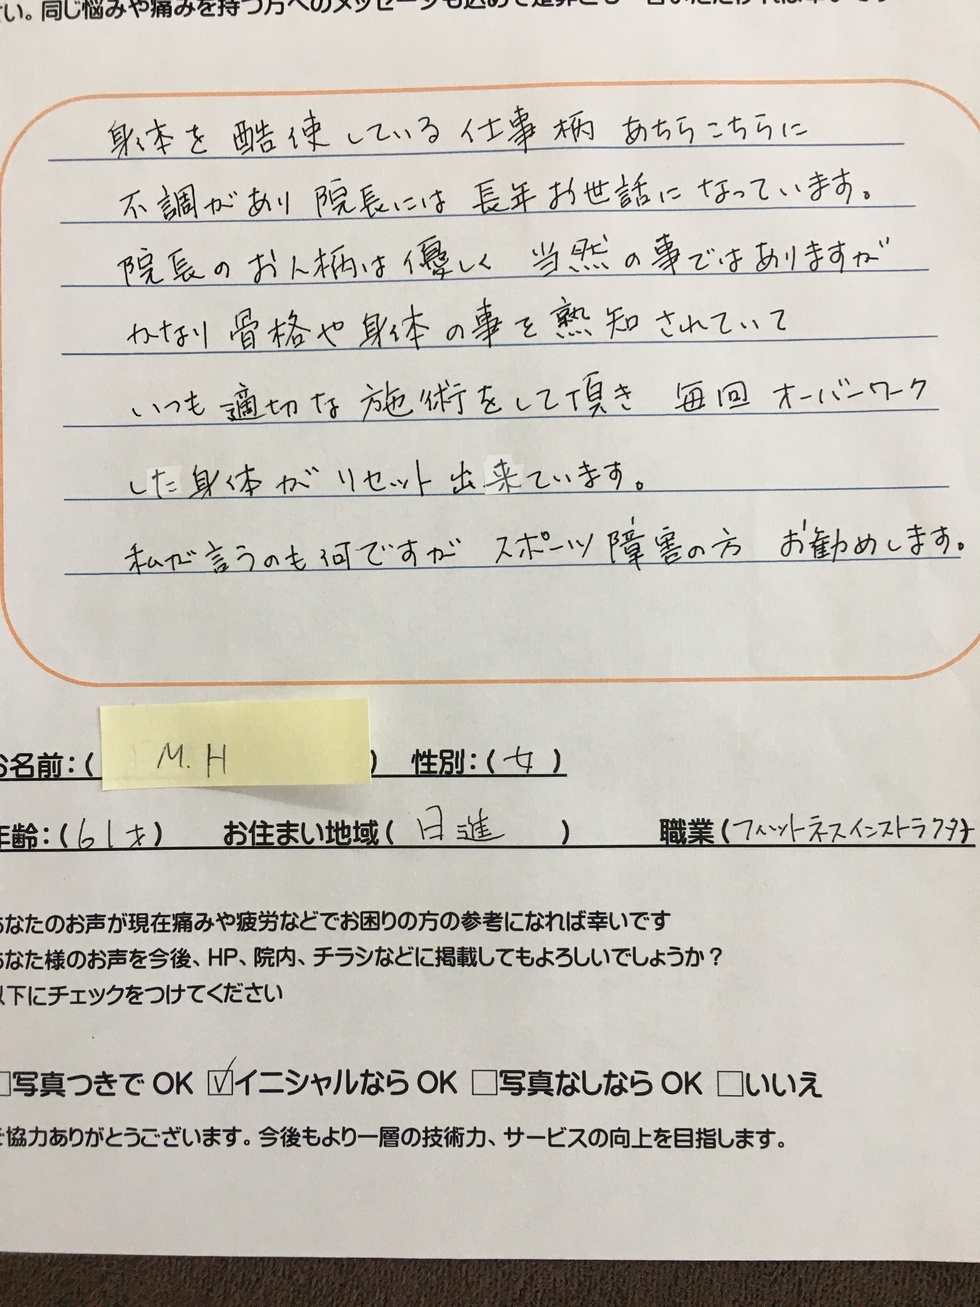 い。同じ悩みや痛みを持つ方へのメッセージも込めて是非とも一言いただければ幸いです
身体を酷使している仕事柄 あちらこちらに
不調があり 院長には 長年お世話になっています。
院長のお人柄は優しく 当然の事ではありますが
かなり骨格や身体の事を熟知されていて
いつも適切な施術をして頂き 毎回オーバーワーク
した身体がリセット出来ています。
私が言うのも何ですが スポーツ障害の方 お勧めします。
お名前:( M.H ) 性別:(女)
年齢:(61才) お住まい地域(日進) 職業(フィットネスインストラクター
あなたのお声が現在痛みや疲労などでお困りの方の参考になれば幸いです
あなた様のお声を今後、HP、院内、チラシなどに掲載してもよろしいでしょうか?
以下にチェックをつけてください
□写真つきで OK ☑イニシャルなら OK □写真なしなら OK □いいえ
ご協力ありがとうございます。今後もより一層の技術力、サービスの向上を目指します。